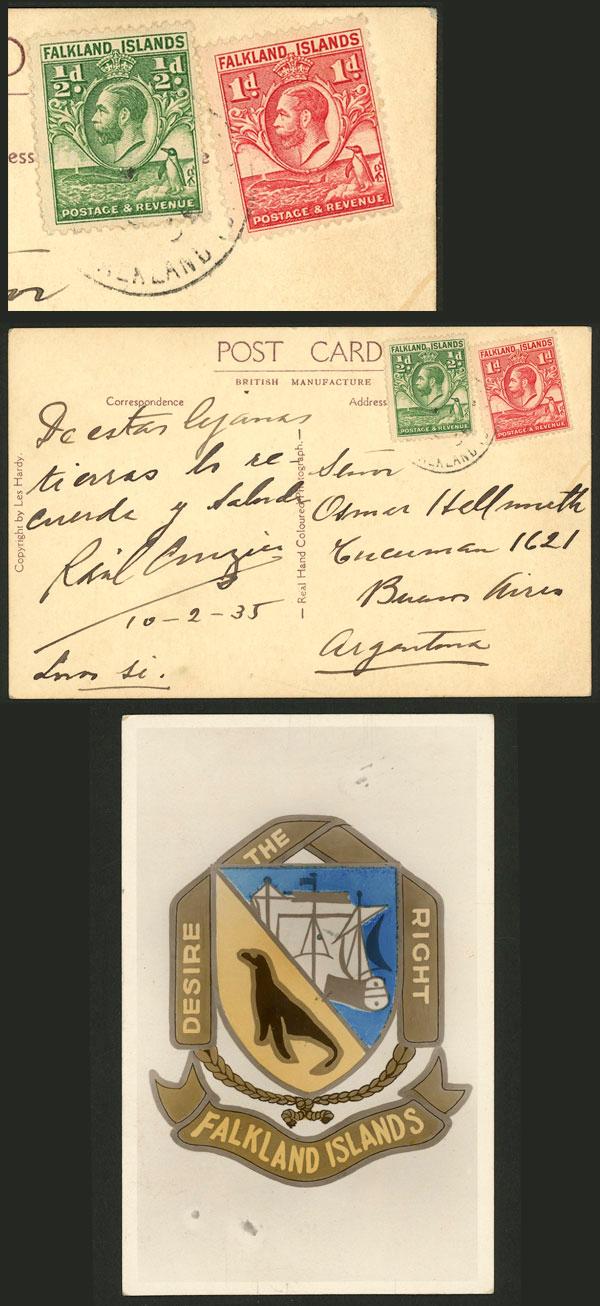 FALKLAND ISLANDS
½d. ½d.
POSTAGE & REVENUE
FALKLAND ISLANDS
1d. 1d.
POSTAGE & REVENUE
ess
e
ALKLAND IS
POST CARD
BRITISH MANUFACTURE
Correspondence
Address
FALKLAND ISLANDS
½d. ½d.
POSTAGE & REVENUE
FALKLAND ISLANDS
1d. 1d.
POSTAGE & REVENUE
ALKLAND IS
Copyright by Les Hardy.
— Real Hand Coloured Photograph. —
De estas lejanas
tierras lo re-
cuerda y saluda
Raúl
10-2-35
si.
Señor
Osmar Hellmuth
Tucuman 1621
Buenos Aires
Argentina
DESIRE THE RIGHT
FALKLAND ISLANDS